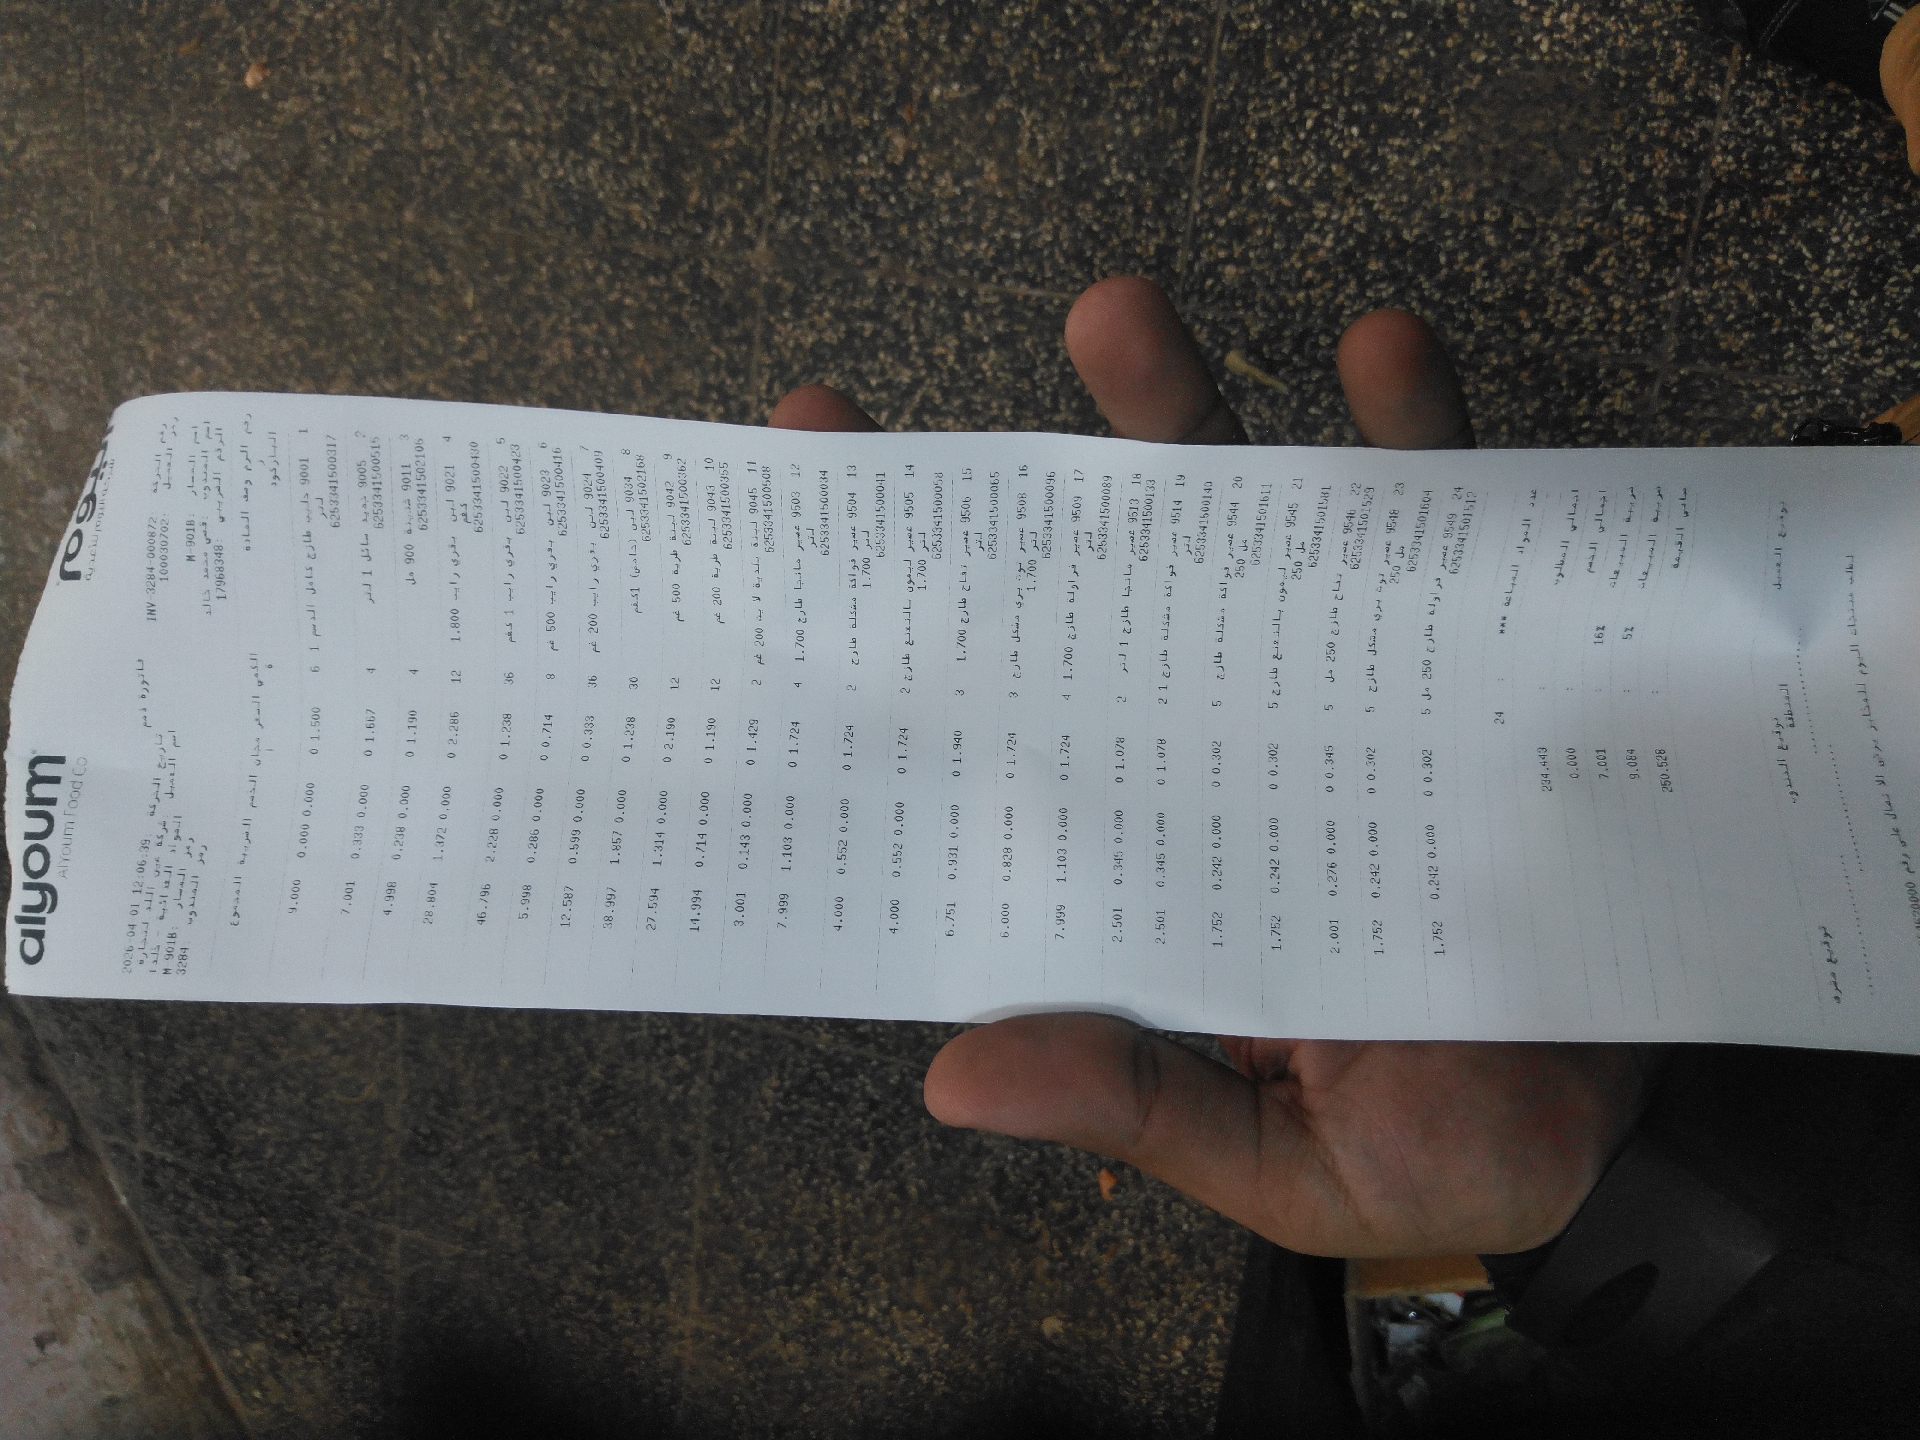 alyoum اليوم
AlYoum Food Co
فاتورة ذمم
رقم الحركة INV-3284-000872 تاريخ الحركة 2026-04-01 12:06:39
رمز العميل: 100030702 اسم العميل
M-901B: اسم المسار M-901B: رمز المسار
3284 رمز المندوب
الرقم الضريبي: 17968348
رقم الرمز وصف المادة الكمية السعر مجاني الخصم الضريبة المجموع
الباركود
1 9001 حليب طازج كامل الدسم 1 6 1.500 0 0.000 0.000 9.000
لتر
6253341500317
2 9005 شنينة سائل 1 لتر 4 1.667 0 0.000 0.333 7.001
6253341500515
3 9011 شنينة 900 مل 4 1.190 0 0.000 0.238 4.998
6253341502106
4 9021 لبن بقري رايب 1.800 12 2.286 0 0.000 1.372 28.804
كغم
6253341500430
5 9022 لبن بقري رايب 1 كغم 36 1.238 0 0.000 2.228 46.796
6253341500423
6 9023 لبن بقري رايب 500 غم 8 0.714 0 0.000 0.286 5.998
6253341500416
7 9024 لبن بقري رايب 200 غم 36 0.333 0 0.000 0.599 12.587
6253341500409
8 9034 لبن (خاص) 1كغم 30 1.238 0 0.000 1.857 38.997
6253341502168
9 9042 لبنة طرية 500 غم 12 2.190 0 0.000 1.314 27.594
6253341500362
10 9043 لبنة طرية 200 غم 12 1.190 0 0.000 0.714 14.994
6253341500355
11 9045 لبنة بلدية لايت 200 غم 2 1.429 0 0.000 0.143 3.001
6253341500508
12 9503 عصير مانجا طازج 1.700 4 1.724 0 0.000 1.103 7.999
لتر
6253341500034
13 9504 عصير فواكه مشكلة طازج 2 1.724 0 0.000 0.552 4.000
1.700 لتر
6253341500041
14 9505 عصير ليمون بالنعنع طازج 2 1.724 0 0.000 0.552 4.000
1.700 لتر
6253341500058
15 9506 عصير تفاح طازج 1.700 3 1.940 0 0.000 0.931 6.751
لتر
6253341500065
16 9508 عصير توت بري مشكل طازج 3 1.724 0 0.000 0.828 6.000
1.700 لتر
6253341500096
17 9509 عصير فراوله طازج 1.700 4 1.724 0 0.000 1.103 7.999
لتر
6253341500089
18 9513 عصير مانجا طازج 1 لتر 2 1.078 0 0.000 0.345 2.501
6253341500133
19 9514 عصير فواكة مشكلة طازج 1 2 1.078 0 0.000 0.345 2.501
لتر
6253341500140
20 9544 عصير فواكة مشكلة طازج 5 0.302 0 0.000 0.242 1.752
250 مل
6253341501611
21 9545 عصير ليمون بالنعنع طازج 5 0.302 0 0.000 0.242 1.752
250 مل
6253341501581
22 9546 عصير تفاح طازج 250 مل 5 0.345 0 0.000 0.276 2.001
6253341501529
23 9548 عصير توت بري مشكل طازج 5 0.302 0 0.000 0.242 1.752
250 مل
6253341501604
24 9549 عصير فراولة طازج 250 مل 5 0.302 0 0.000 0.242 1.752
6253341501512
عدد المواد المباعة *** : 24
اجمالي المطلوب : 234.443
اجمالي الخصم : 0.000
ضريبة المبيعات 16% : 7.001
ضريبة المبيعات 5% : 9.084
صافي القيمة : 250.528
توقيع العميل توقيع المندوب
المنطقة
توقيع مشرف